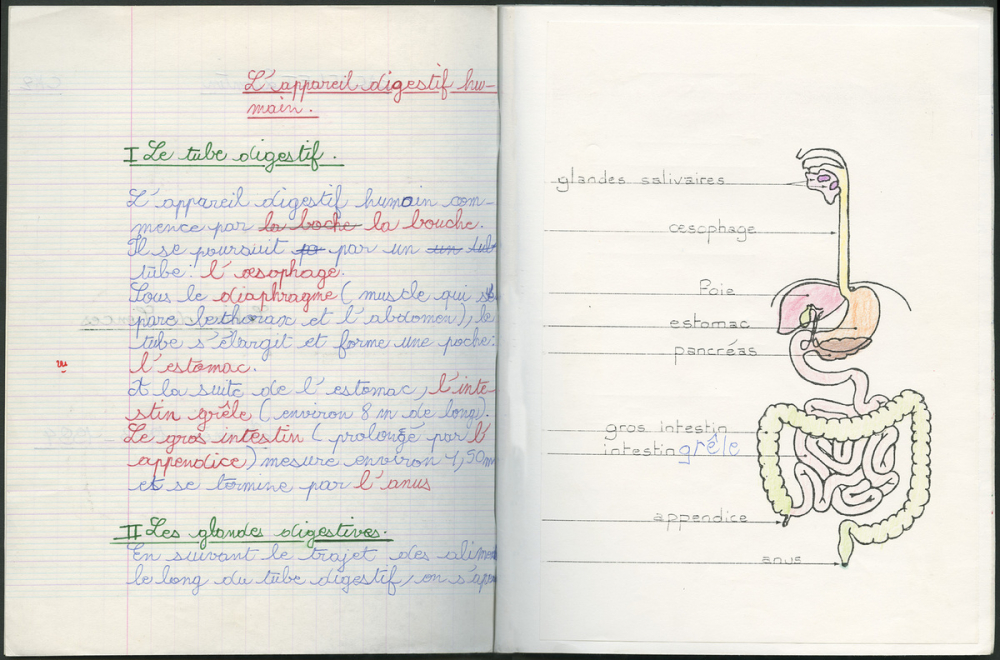 L'appareil digestif hu-
main.
I Le tube digestif.
L'appareil digestif humain com-
mence par la boche la bouche.
Il se poursuit po par un un tub
tube: l'œsophage.
Sous le diaphragme (muscle qui sé
pare le thorax et l'abdomen), le
tube s'élargit et forme une poche:
l'estomac.
A la suite de l'estomac, l'inte
stin grêle (environ 8 m de long).
Le gros intestin (prolongé par l'
appendice) mesure environ 1,50m
et se termine par l'anus
II Les glandes digestives.
En suivant le trajet des alime
le long du tube digestif, on s'ape
glandes salivaires
œsophage
foie
estomac
pancréas
gros intestin
intestin grêle
appendice
anus